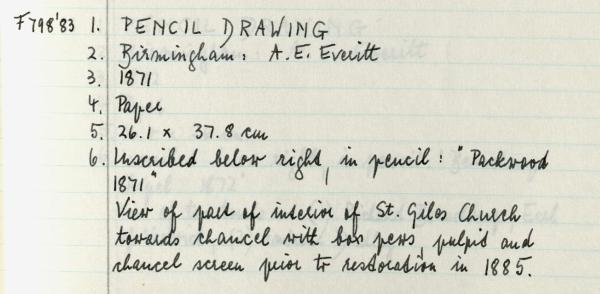 F798'83 1. PENCIL DRAWING
2. Birmingham: A.E. Everitt
3. 1871
4. Paper
5. 26.1 x 37.8 cm
6. Inscribed below right, in pencil: "Packwood
1871"
View of part of interior of St. Giles Church
towards chancel with box pews, pulpit and
chancel screen prior to restoration in 1885.